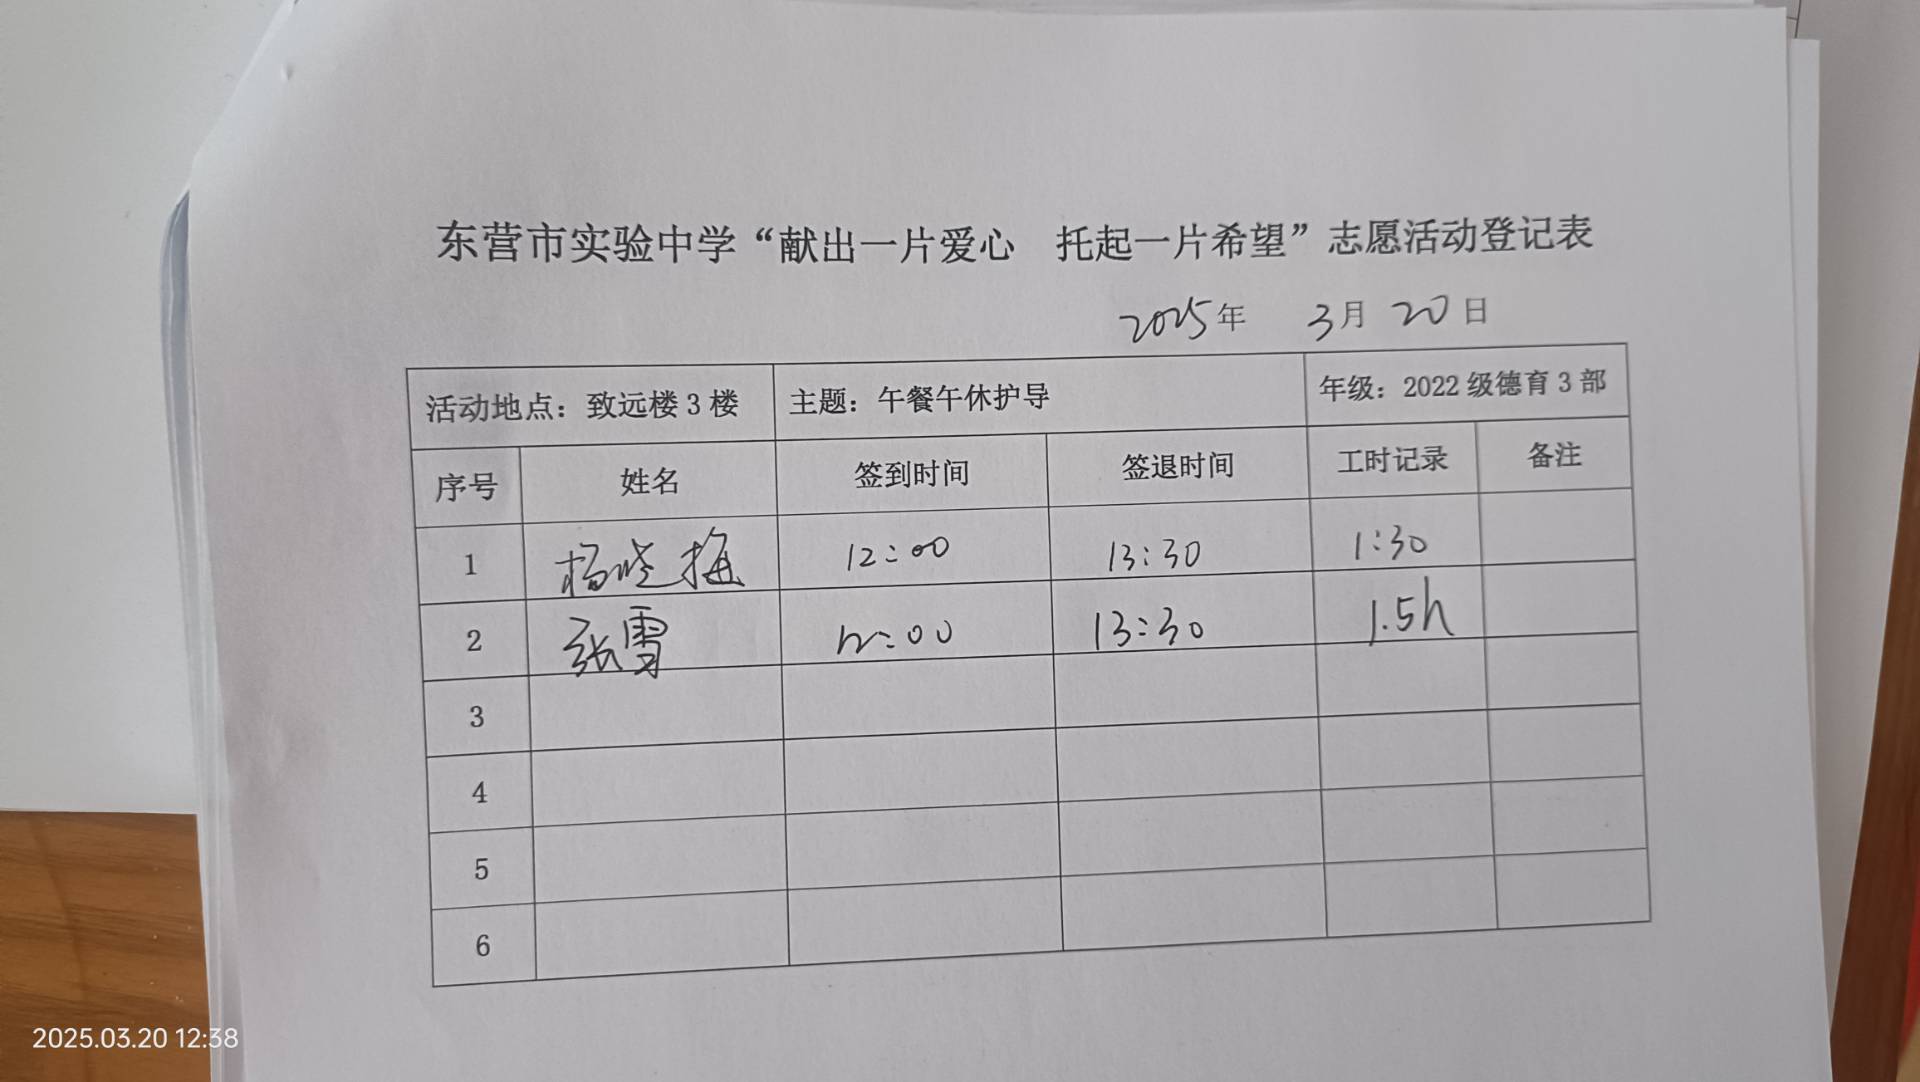 东营市实验中学“献出一片爱心 托起一片希望”志愿活动登记表
2025年 3月 20日
活动地点：致远楼3楼 主题：午餐午休护导 年级：2022级德育3部
序号 姓名 签到时间 签退时间 工时记录 备注
1 杨晓梅 12:00 13:30 1:30
2 张雪 12:00 13:30 1.5h
3
4
5
6
2025.03.20 12:38